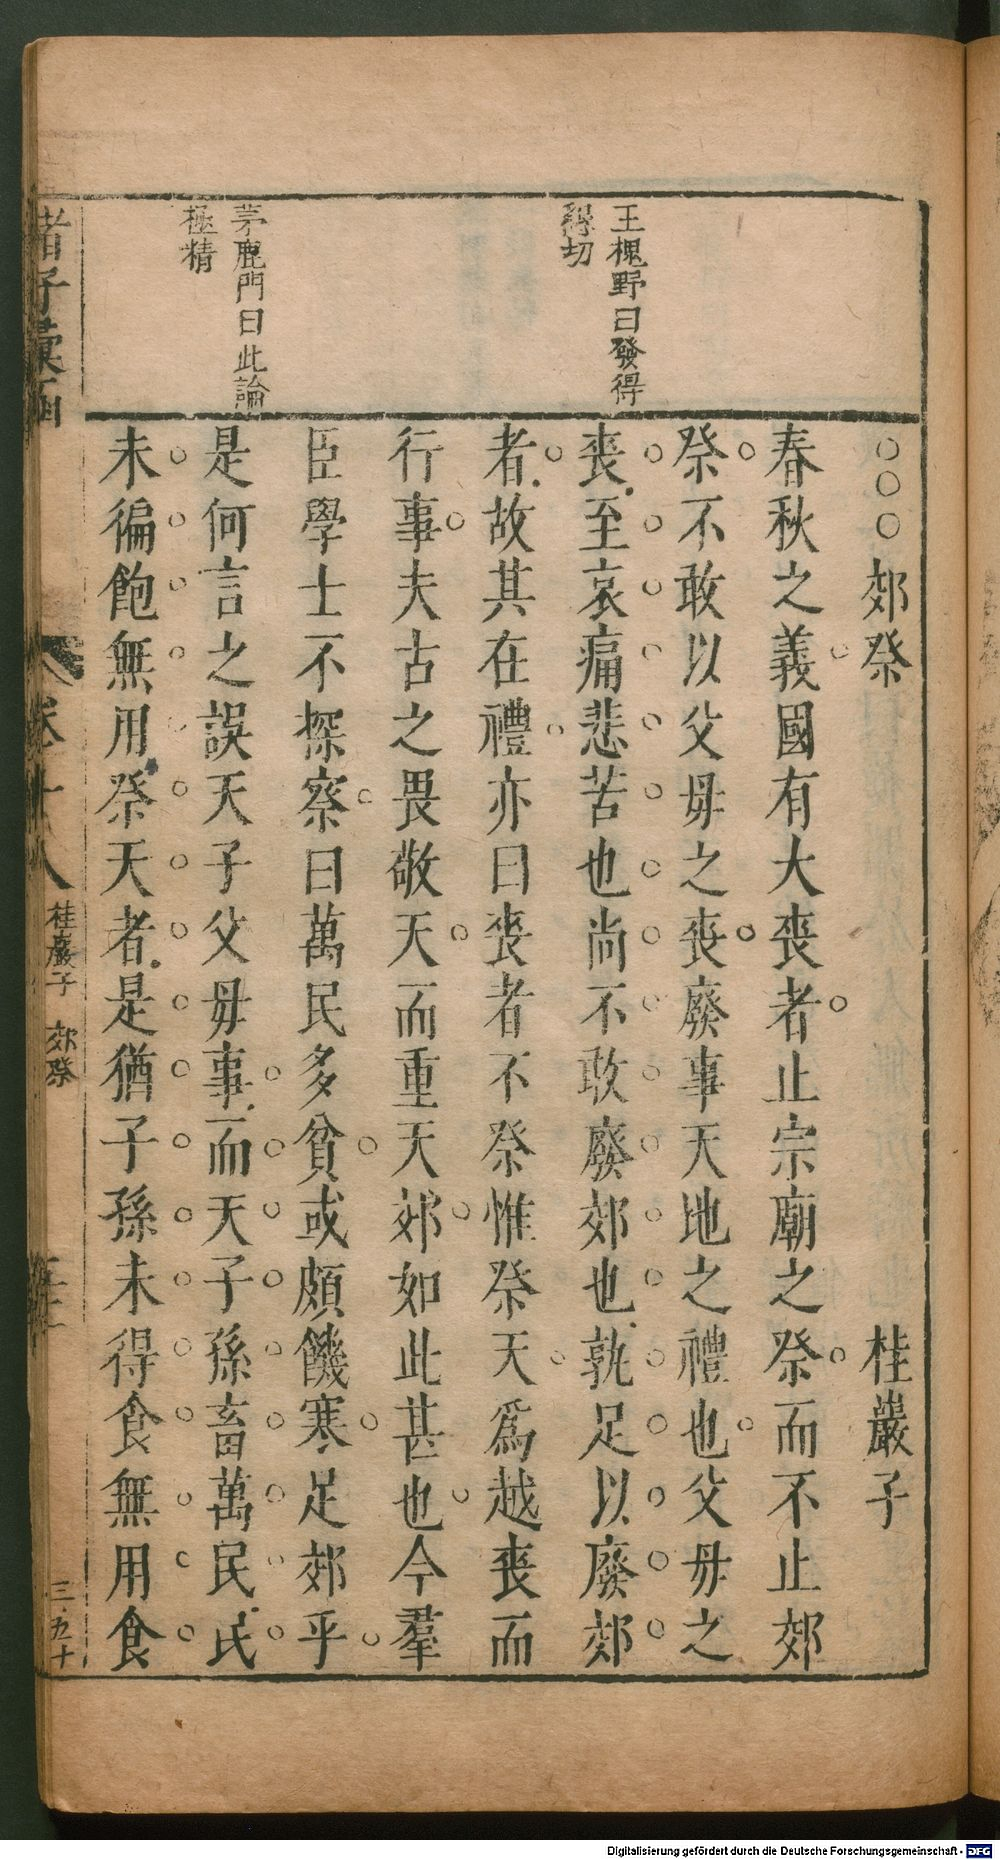 王槐野曰發得
得切
茅鹿門曰此論
極精
○○○郊祭 桂巖子
春秋之義國有大喪者止宗廟之祭而不止郊
祭不敢以父母之喪廢事天地之禮也父母之
喪至哀痛悲苦也尚不敢廢郊也孰足以廢郊
者故其在禮亦曰喪者不祭惟祭天爲越喪而
行事夫古之畏敬天而重天郊如此甚也今羣
臣學士不探察曰萬民多貧或頗饑寒足郊乎
是何言之誤天子父母事而天子孫畜萬民民
未徧飽無用祭天者是猶子孫未得食無用食
諸子彙函 卷十八 桂巖子 郊祭 三五十
Digitalisierung gefördert durch die Deutsche Forschungsgemeinschaft - DFG